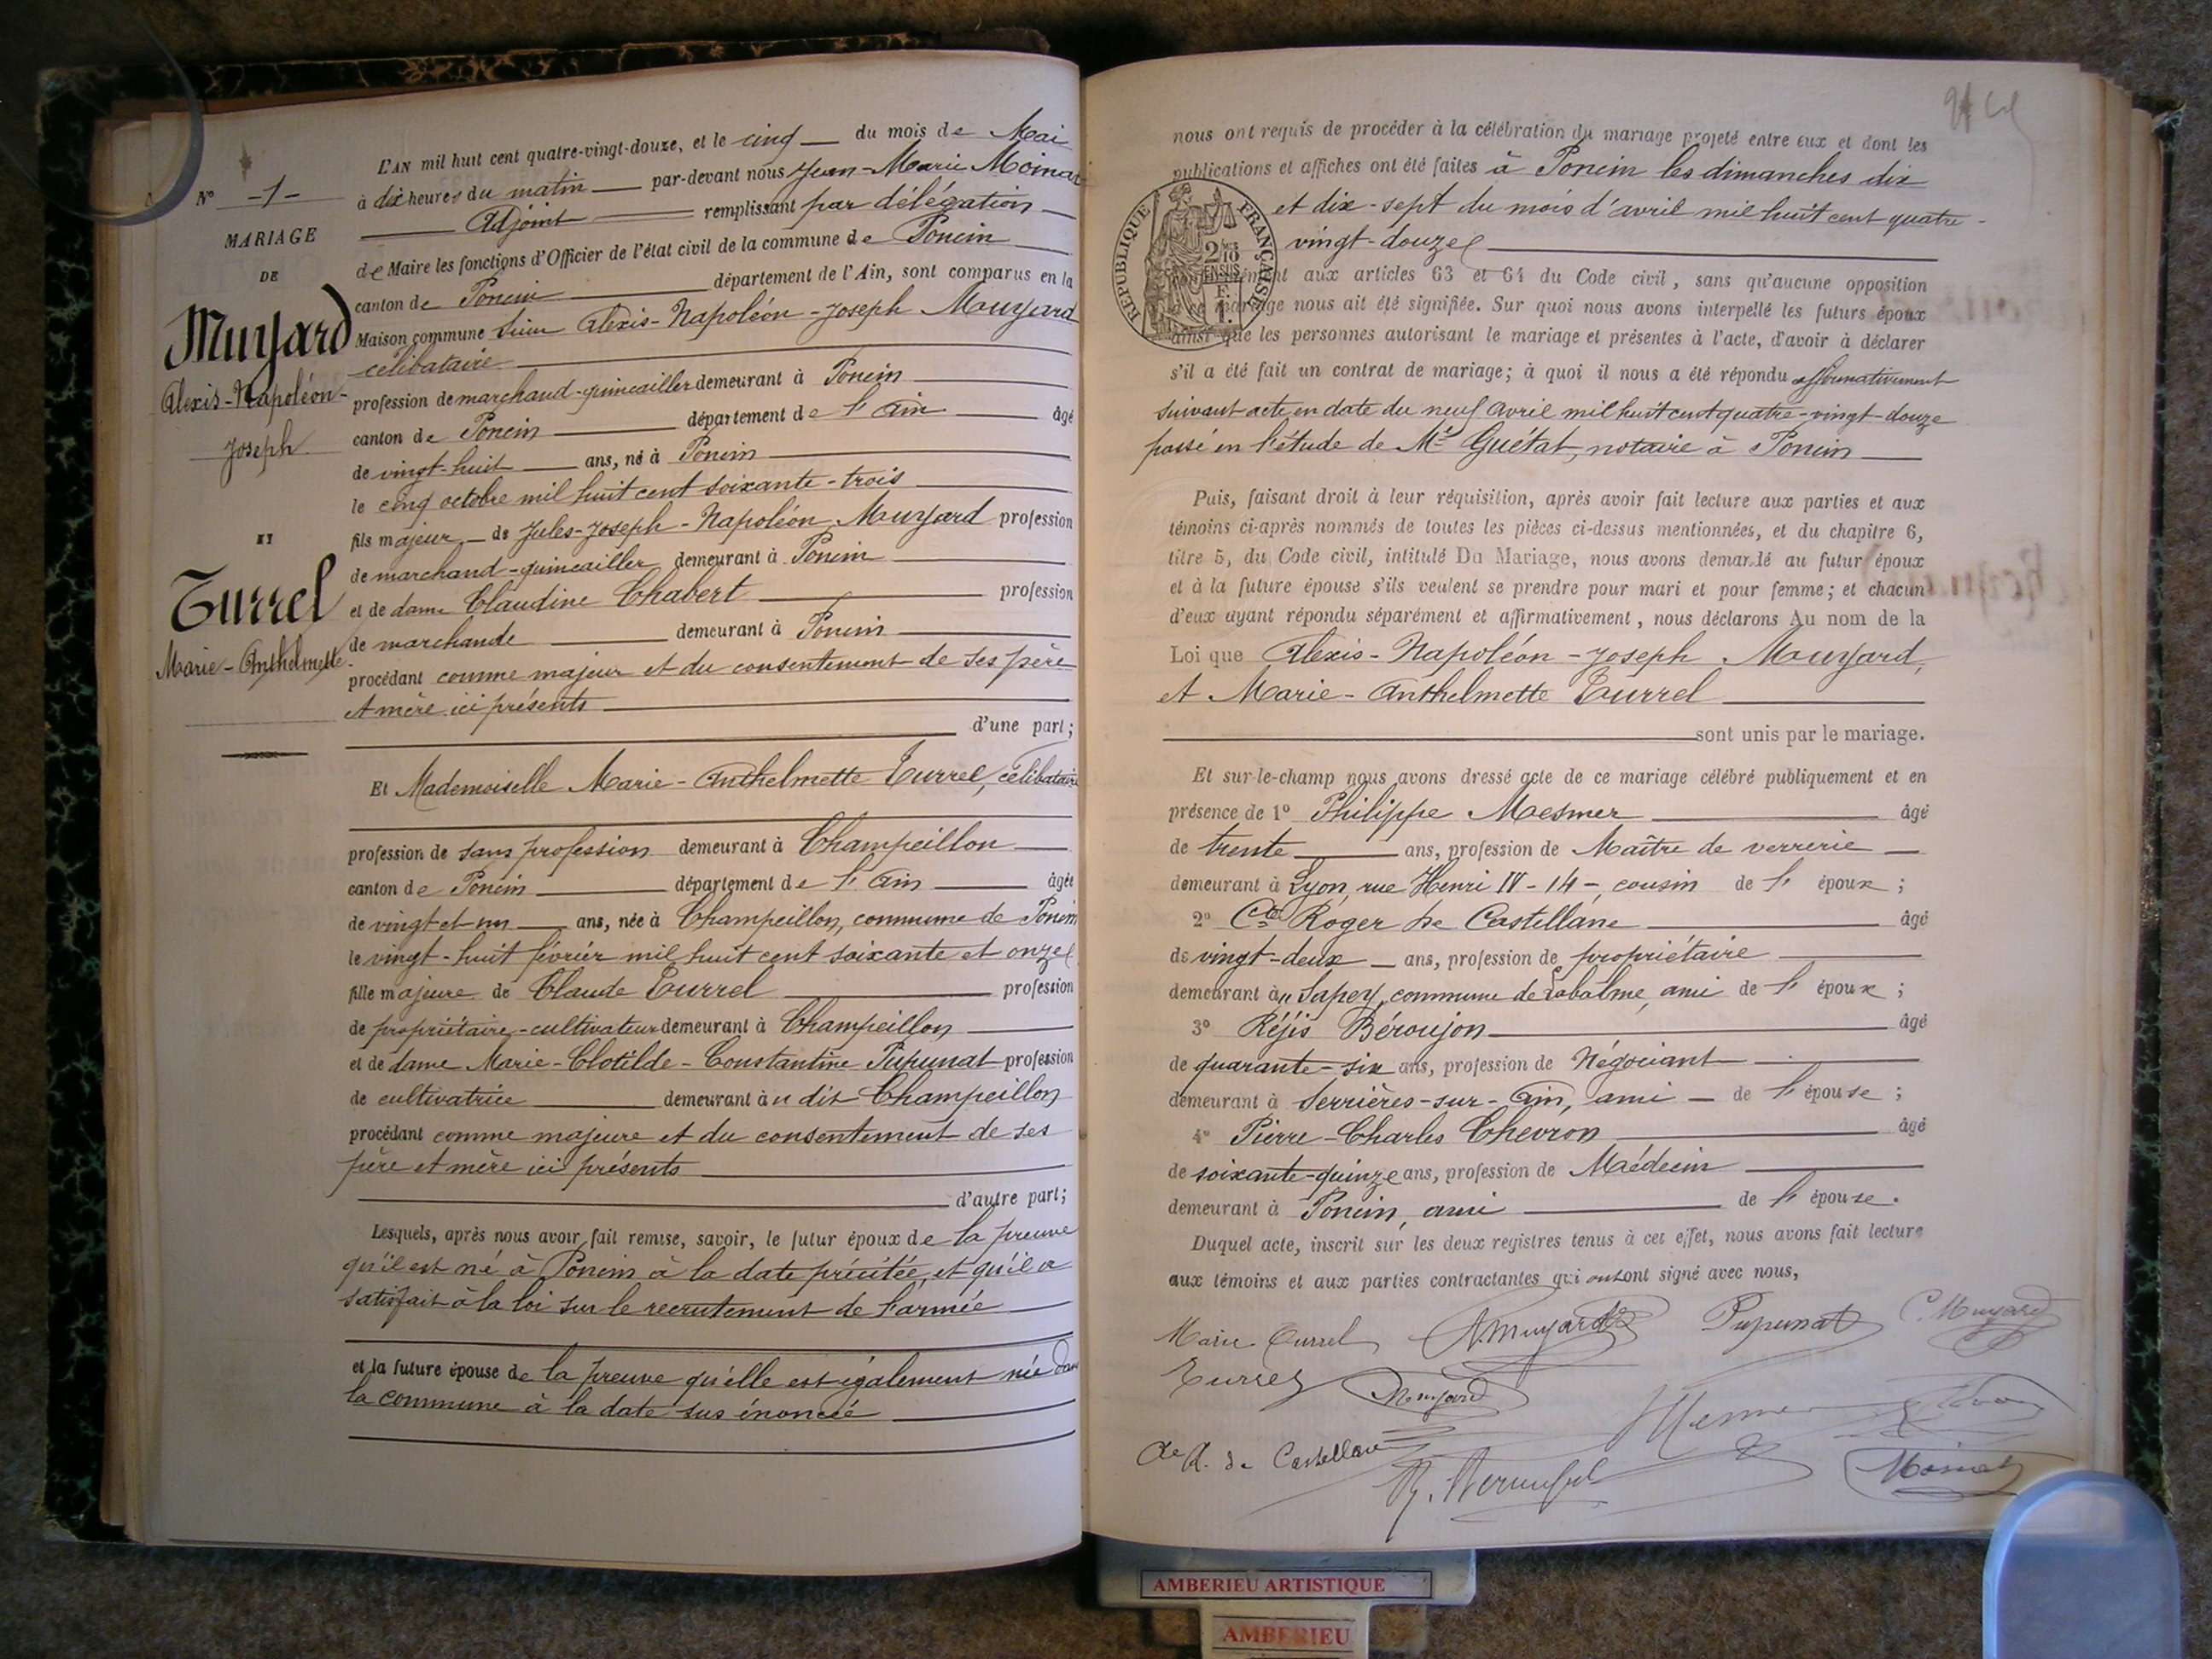 N° -1-
MARIAGE
DE
Muyard
Alexis-Napoléon-
Joseph
ET
Turrel
Marie-Anthelmette
L'AN mil huit cent quatre-vingt-douze, et le cinq du mois de Mai
à dix heures du matin par-devant nous Jean-Marie Moinat
Adjoint remplissant par délégation
de Maire les fonctions d'Officier de l'état civil de la commune de Poncin
canton de Poncin département de l'Ain, sont comparus en la
Maison commune Sieur Alexis-Napoléon-Joseph Muyard
célibataire
profession de marchand-quincailler demeurant à Poncin
canton de Poncin département de l'Ain âgé
de vingt-huit ans, né à Poncin
le cinq octobre mil huit cent soixante-trois
fils majeur de Jules-Joseph-Napoléon Muyard profession
de marchand-quincailler demeurant à Poncin
et de dame Claudine Chabert profession
de marchande demeurant à Poncin
procédant comme majeur et du consentement de ses père
et mère ici présents
d'une part;
Et Mademoiselle Marie-Anthelmette Turrel, célibataire
profession de sans profession demeurant à Champeillon
canton de Poncin département de l'Ain âgée
de vingt et un ans, née à Champeillon, commune de Poncin
le vingt-huit février mil huit cent soixante et onze
fille majeure de Claude Turrel profession
de propriétaire-cultivateur demeurant à Champeillon
et de dame Marie-Clotilde-Constantine Pupunat profession
de cultivatrice demeurant au dit Champeillon
procédant comme majeure et du consentement de ses
père et mère ici présents
d'autre part;
Lesquels, après nous avoir fait remise, savoir, le futur époux de la preuve
qu'il est né à Poncin à la date précitée, et qu'il a
satisfait à la loi sur le recrutement de l'armée
et la future épouse de la preuve qu'elle est également née dans
la commune à la date sus énoncée
nous ont requis de procéder à la célébration du mariage projeté entre eux et dont les
publications et affiches ont été faites à Poncin les dimanches dix
et dix-sept du mois d'avril mil huit cent quatre-
vingt-douze
REPUBLIQUE FRANÇAISE
2/10 EN SUS
F.
1.
aux articles 63 et 64 du Code civil, sans qu'aucune opposition
mariage nous ait été signifiée. Sur quoi nous avons interpellé les futurs époux
ainsi que les personnes autorisant le mariage et présentes à l'acte, d'avoir à déclarer
s'il a été fait un contrat de mariage; à quoi il nous a été répondu affirmativement
suivant acte en date du neuf avril mil huit cent quatre-vingt-douze
passé en l'étude de Me Guétat, notaire à Poncin
Puis, faisant droit à leur réquisition, après avoir fait lecture aux parties et aux
témoins ci-après nommés de toutes les pièces ci-dessus mentionnées, et du chapitre 6,
titre 5, du Code civil, intitulé Du Mariage, nous avons demandé au futur époux
et à la future épouse s'ils veulent se prendre pour mari et pour femme; et chacun
d'eux ayant répondu séparément et affirmativement, nous déclarons Au nom de la
Loi que Alexis-Napoléon-Joseph Muyard,
et Marie-Anthelmette Turrel
sont unis par le mariage.
Et sur-le-champ nous avons dressé acte de ce mariage célébré publiquement et en
présence de 1° Philippe Mesmer âgé
de trente ans, profession de Maître de verrerie
demeurant à Lyon, rue Henri IV-14-, cousin de l'époux;
2° Cte Roger de Castellane âgé
de vingt-deux ans, profession de propriétaire
demeurant au Sapey, commune de Labalme, ami de l'époux;
3° Réjis Béroujon âgé
de quarante-six ans, profession de Négociant
demeurant à Serrières-sur-Ain, ami de l'épouse;
4° Pierre-Charles Chevron âgé
de soixante-quinze ans, profession de Médecin
demeurant à Poncin, ami de l'épouse.
Duquel acte, inscrit sur les deux registres tenus à cet effet, nous avons fait lecture
aux témoins et aux parties contractantes qui ont signé avec nous,
Marie Turrel AMuyard Pupunat C. Muyard
Turrel Muyard
R. de Castellane Moinat
AMBERIEU ARTISTIQUE
AMBERIEU